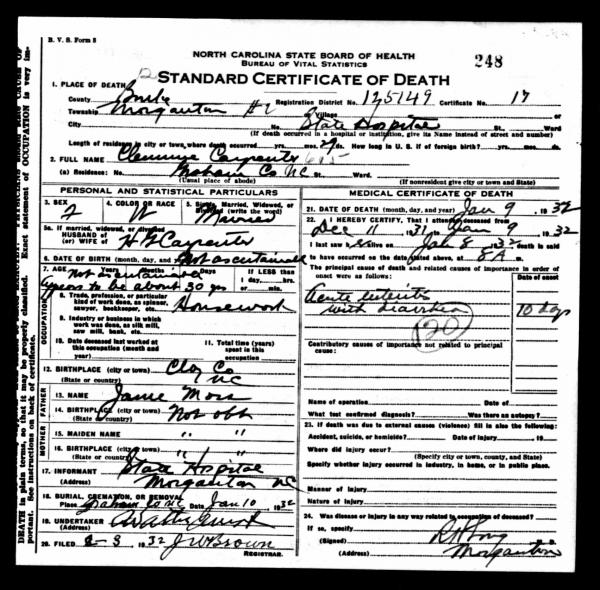 B. V. S. Form 8
NORTH CAROLINA STATE BOARD OF HEALTH
BUREAU OF VITAL STATISTICS
248
STANDARD CERTIFICATE OF DEATH
1. PLACE OF DEATH
County Burke Registration District No. 125149 Certificate No. 17
Township Morganton #2 or Village or
City No. State Hospital St., Ward
(If death occurred in a hospital or institution, give its Name instead of street and number)
Length of residence in city or town where death occurred yrs. mos. 29 ds. How long in U. S. if of foreign birth? yrs. mos. ds.
2. FULL NAME Carpenter 615
(a) Residence: No. Graham Co NC St., Ward.
(If nonresident give city or town and State)
PERSONAL AND STATISTICAL PARTICULARS
3. SEX F
4. COLOR OR RACE W
5. Single, Married, Widowed, or Divorced (write the word) Married
5a. If married, widowed, or divorced
HUSBAND of
(or) WIFE of Carpenter
6. DATE OF BIRTH (month, day, and year) Not ascertained
7. AGE Not ascertained
If LESS than
1 day, hrs.
or min.
Appears to be about 30 yrs
OCCUPATION
8. Trade, profession, or particular
kind of work done, as spinner,
sawyer, bookkeeper, etc. Housework
9. Industry or business in which
work was done, as silk mill,
saw mill, bank, etc.
10. Date deceased last worked at
this occupation (month and
year)
11. Total time (years)
spent in this
occupation
12. BIRTHPLACE (city or town) Clay Co
(State or country) NC
FATHER
13. NAME Jamie Moss
14. BIRTHPLACE (city or town) Not obt
(State or country)
MOTHER
15. MAIDEN NAME " "
16. BIRTHPLACE (city or town) " "
(State or country)
17. INFORMANT State Hospital
(Address) Morganton NC
18. BURIAL, CREMATION, OR REMOVAL
Place Graham Co NC Date Jan 10 1932
19. UNDERTAKER
20. FILED 2-3 1932 J W Brown
REGISTRAR.
MEDICAL CERTIFICATE OF DEATH
21. DATE OF DEATH (month, day, and year) Jan 9 1932
22. I HEREBY CERTIFY, That I attended deceased from
Dec 11 1931 to Jan 9 1932
I last saw h er alive on Jan 8 1932 death is said
to have occurred on the date stated above, at 8 A m.
The principal cause of death and related causes of importance in order of onset were as follows:
Date of onset
Acute enteritis
with diarrhea 10 days
(120)
Contributory causes of importance not related to principal
cause:
Name of operation Date of
What test confirmed diagnosis? Was there an autopsy?
23. If death was due to external causes (violence) fill in also the following:
Accident, suicide, or homicide? Date of injury 19
Where did injury occur?
(Specify city or town, county, and State)
Specify whether injury occurred in industry, in home, or in public place.
Manner of injury
Nature of injury
24. Was disease or injury in any way related to occupation of deceased?
If so, specify
(Signed) R H Long
(Address) Morganton
Exact statement of OCCUPATION is very im-
DEATH in plain terms, so that it may be properly classified.
portant. See instructions on back of certificate.